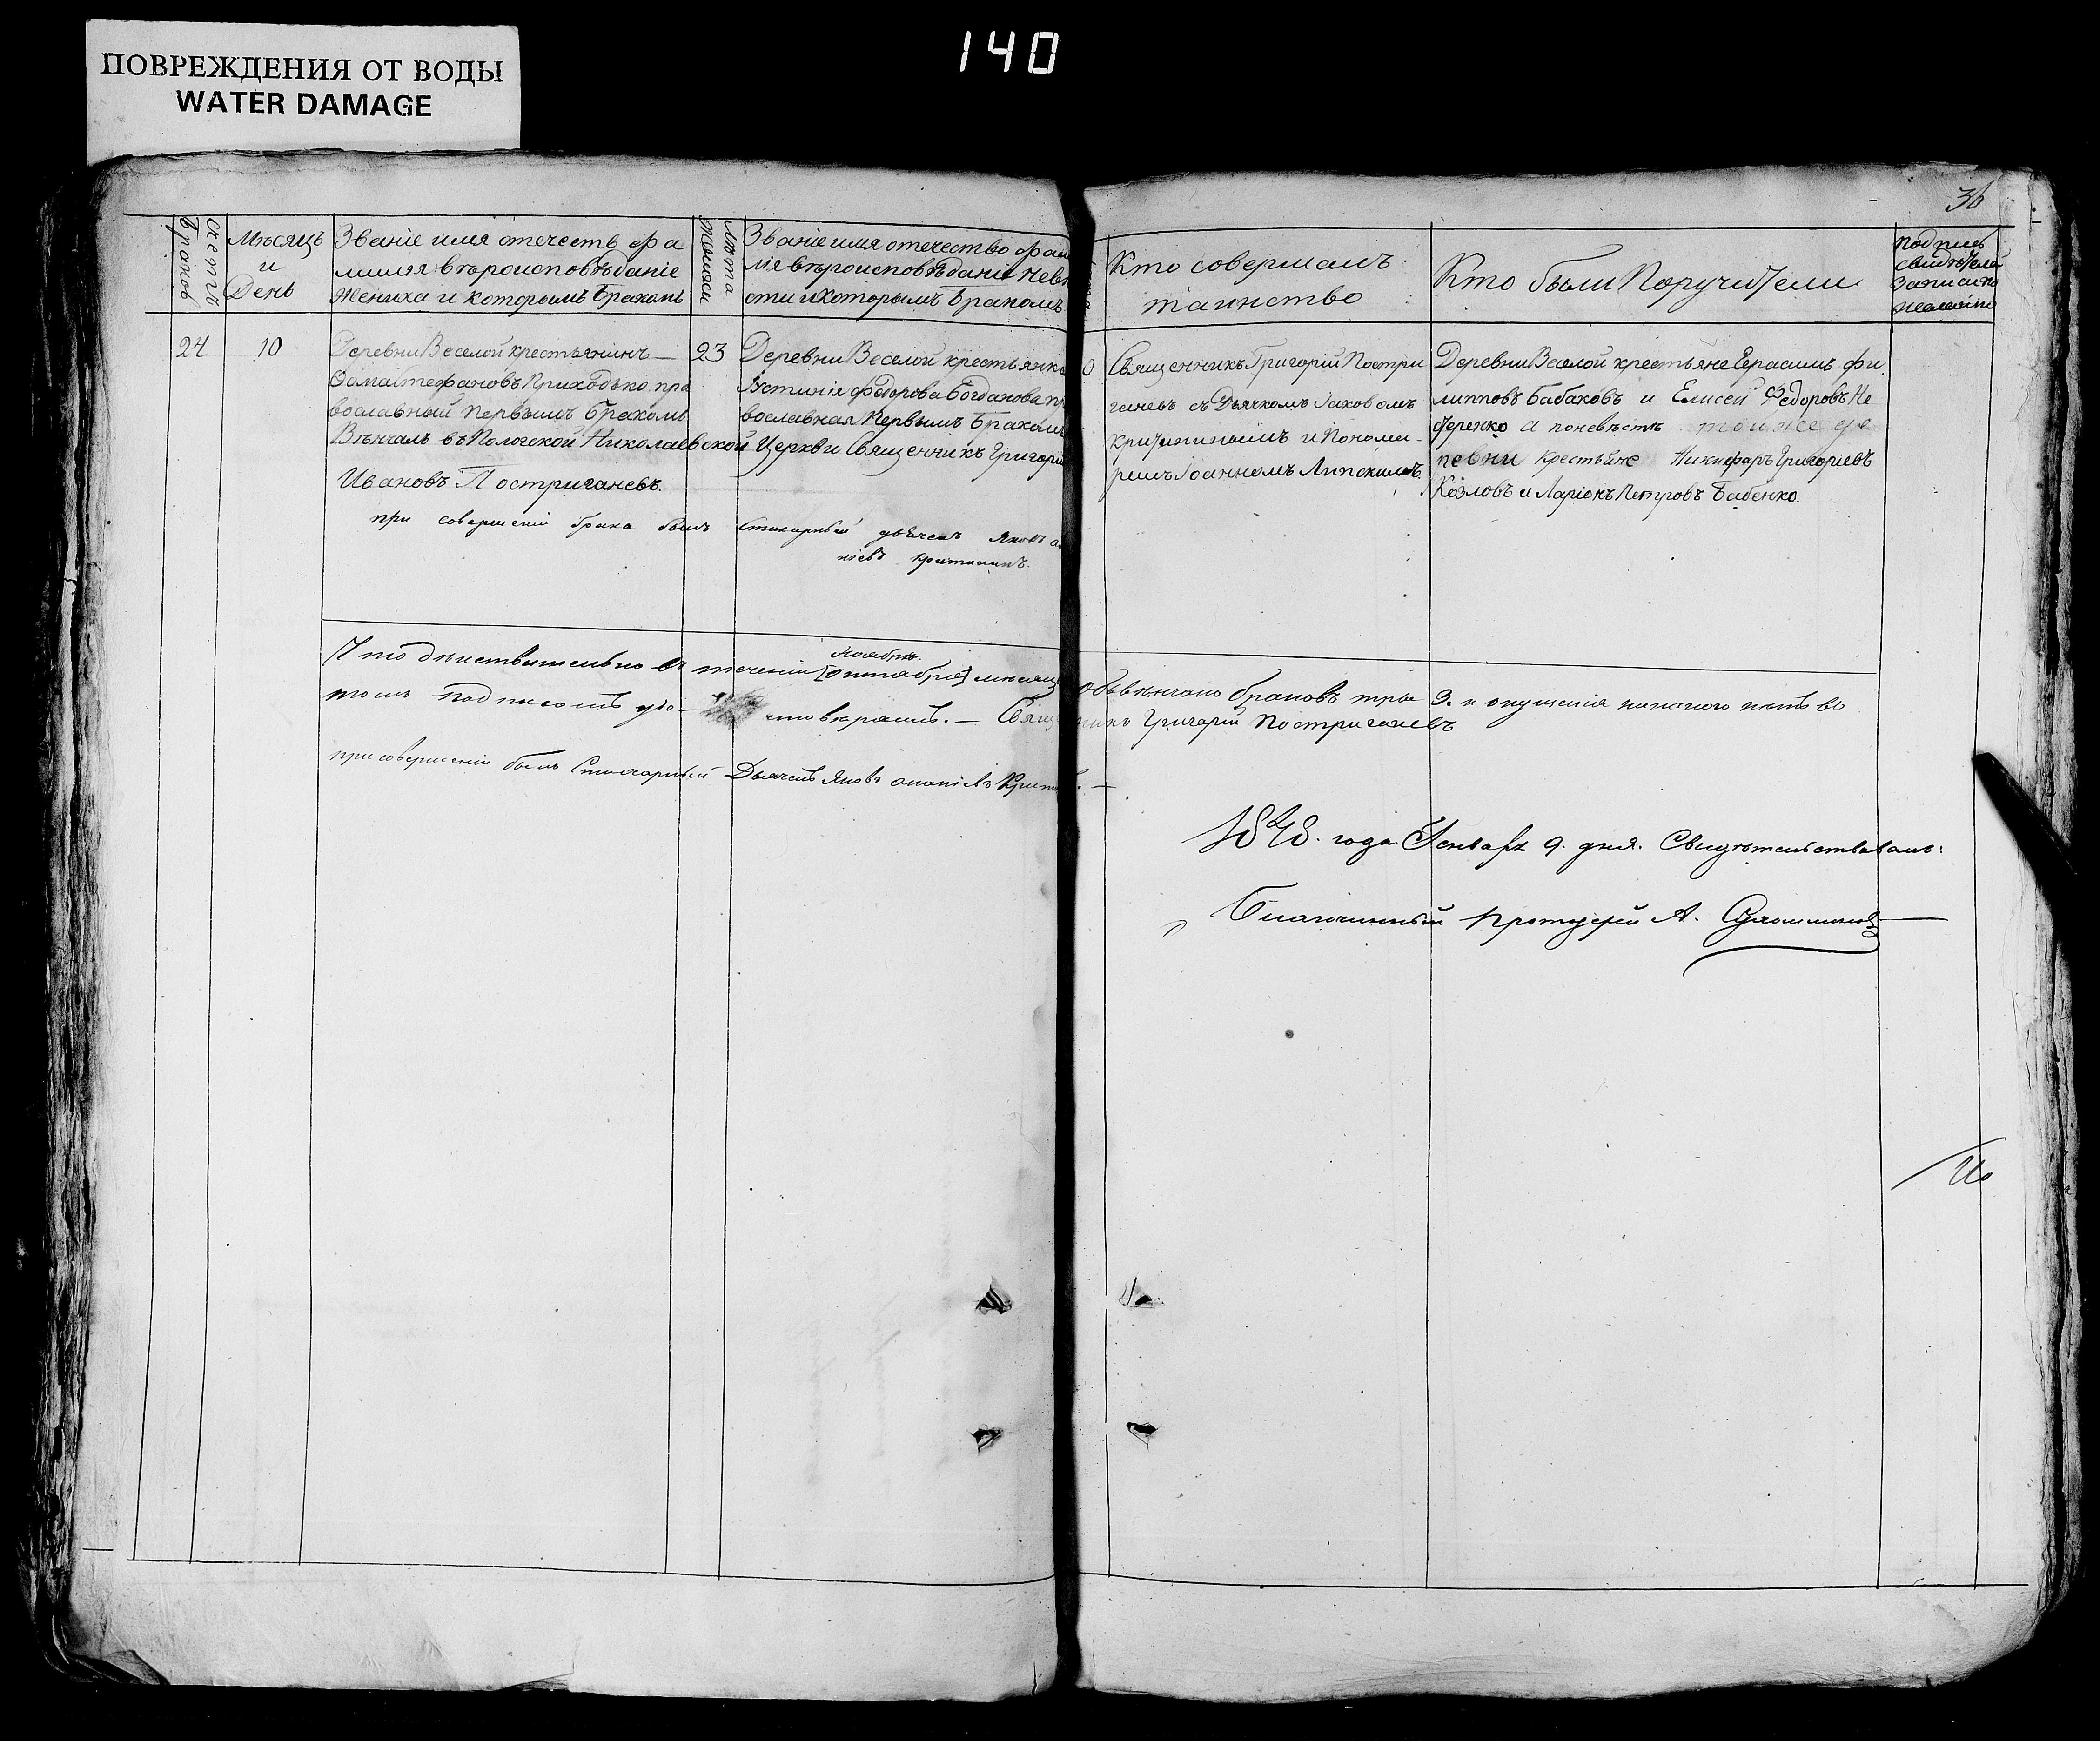 140
ПОВРЕЖДЕНИЯ ОТ ВОДЫ
WATER DAMAGE
36
Счетъ браковъ
Мѣсяцъ
и
День
Званіе имя отечествъ фа
милія вѣроисповѣданіе
Жениха и которымъ бракомъ
Лѣта жениха
Званіе имя отечество фам
лія вѣроисповѣдани невѣ
сти и которымъ бракомъ
Кто совершалъ
таинство
Кто были Поручители
Подпись
свидѣтеля
записи по
желанію
24
10
Деревни Веселой крестьянинъ —
Фома Стефановъ Приходько пра
вославный первымъ бракомъ
Вѣнчалъ въ Пологской Николаевской Церкви Священникъ Григорій
Ивановъ Постриганевъ.
при совершеніи брака былъ стихарный дьячекъ Яковъ
ніевъ
23
Деревни Веселой крестьянка
Устинія Федорова Богданова пр
вославная Первымъ Бракомъ
0
Священникъ Григорій Постри
ганевъ съ Дьячкомъ Іаковомъ
и Понома-
ремъ Іоанномъ Липскимъ.
Деревни Веселой крестьяне Герасимъ Фи
липповъ Бабаковъ и Елисей Федоровъ Не
а поневѣстѣ тойже де
ревни крестьяне Никифоръ Григоріевъ
Козловъ и Ларіонъ Петровъ Бабенко.
Ноябрѣ
Что дѣйствительно въ теченіи [октября] мѣсяца обвѣнчано браковъ три 3. и опущенія никакого нѣтъ во
томъ подписомъ удо- стовѣряемъ. — Священникъ Григорій Постриганевъ
при совершеніи былъ Стихарный Дьячекъ Яковъ Ананіевъ
1848. года Генваря 9. дня. Свидѣтельствовалъ:
Благочинный протоіерей А.